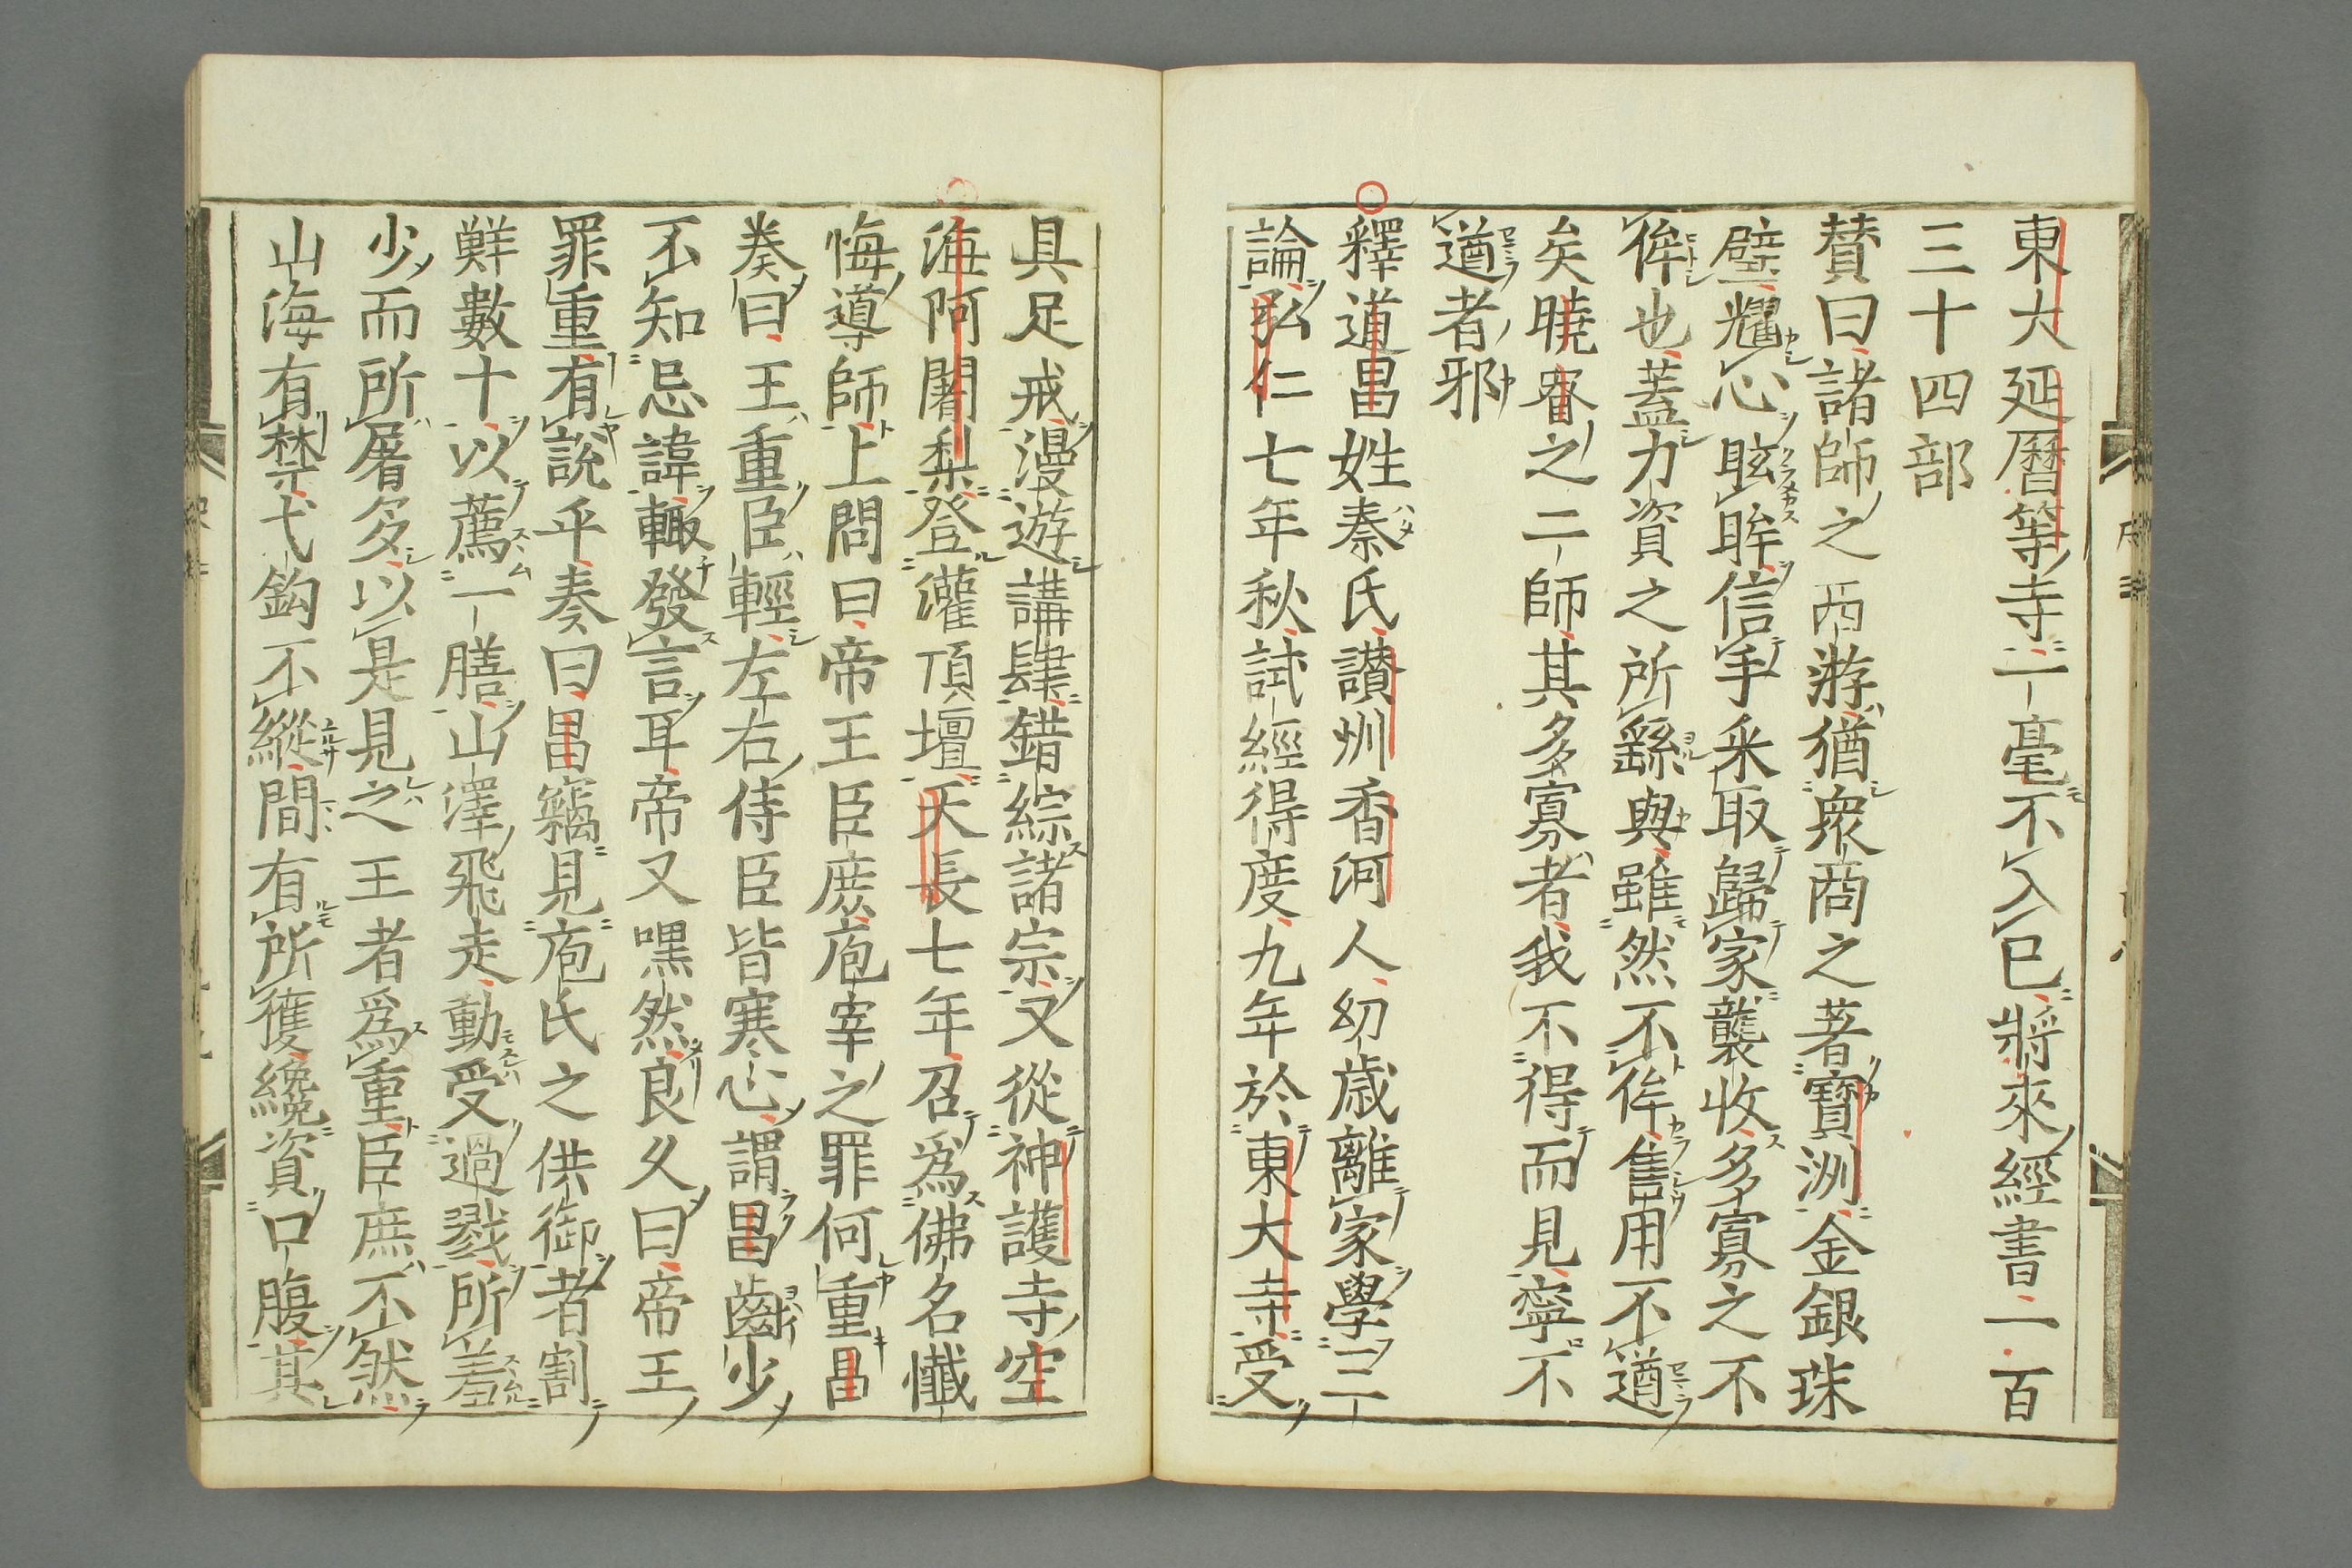 東大延曆等寺一毫不入己將來經書一百
三十四部
賛曰諸師之西游猶衆商之著寶洲金銀珠
璧燿心眩眸信手采取歸家襲收多寡之不
侔也蓋力資之所繇與雖然不侔售用不遒
矣曉睿之二師其多寡者我不得而見寧不
遒者邪
釋道昌姓秦氏讃州香河人幼歳離家學三
論弘仁七年秋試經得度九年於東大寺受
具足戒漫遊講肆錯綜諸宗又從神護寺空
海阿闍梨登灌頂壇天長七年召爲佛名懺
悔導師上問曰帝王臣庶庖宰之罪何重昌
奏曰王重臣輕左右侍臣皆寒心謂昌齒少
不知忌諱輙發言耳帝又嘿然良久曰帝王
罪重有說乎奏曰昌竊見庖氏之供御者割
鮮數十以薦一膳山澤飛走動受過戮所羞
少而所屠多以是見之王者爲重臣庶不然
山海有禁弋鈎不縱間有所獲纔資口腹其